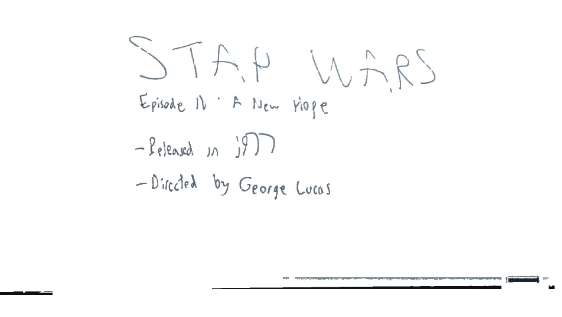 STAR WARS
Episode IV: A New Hope
- Released in 1977
- Directed by George Lucas